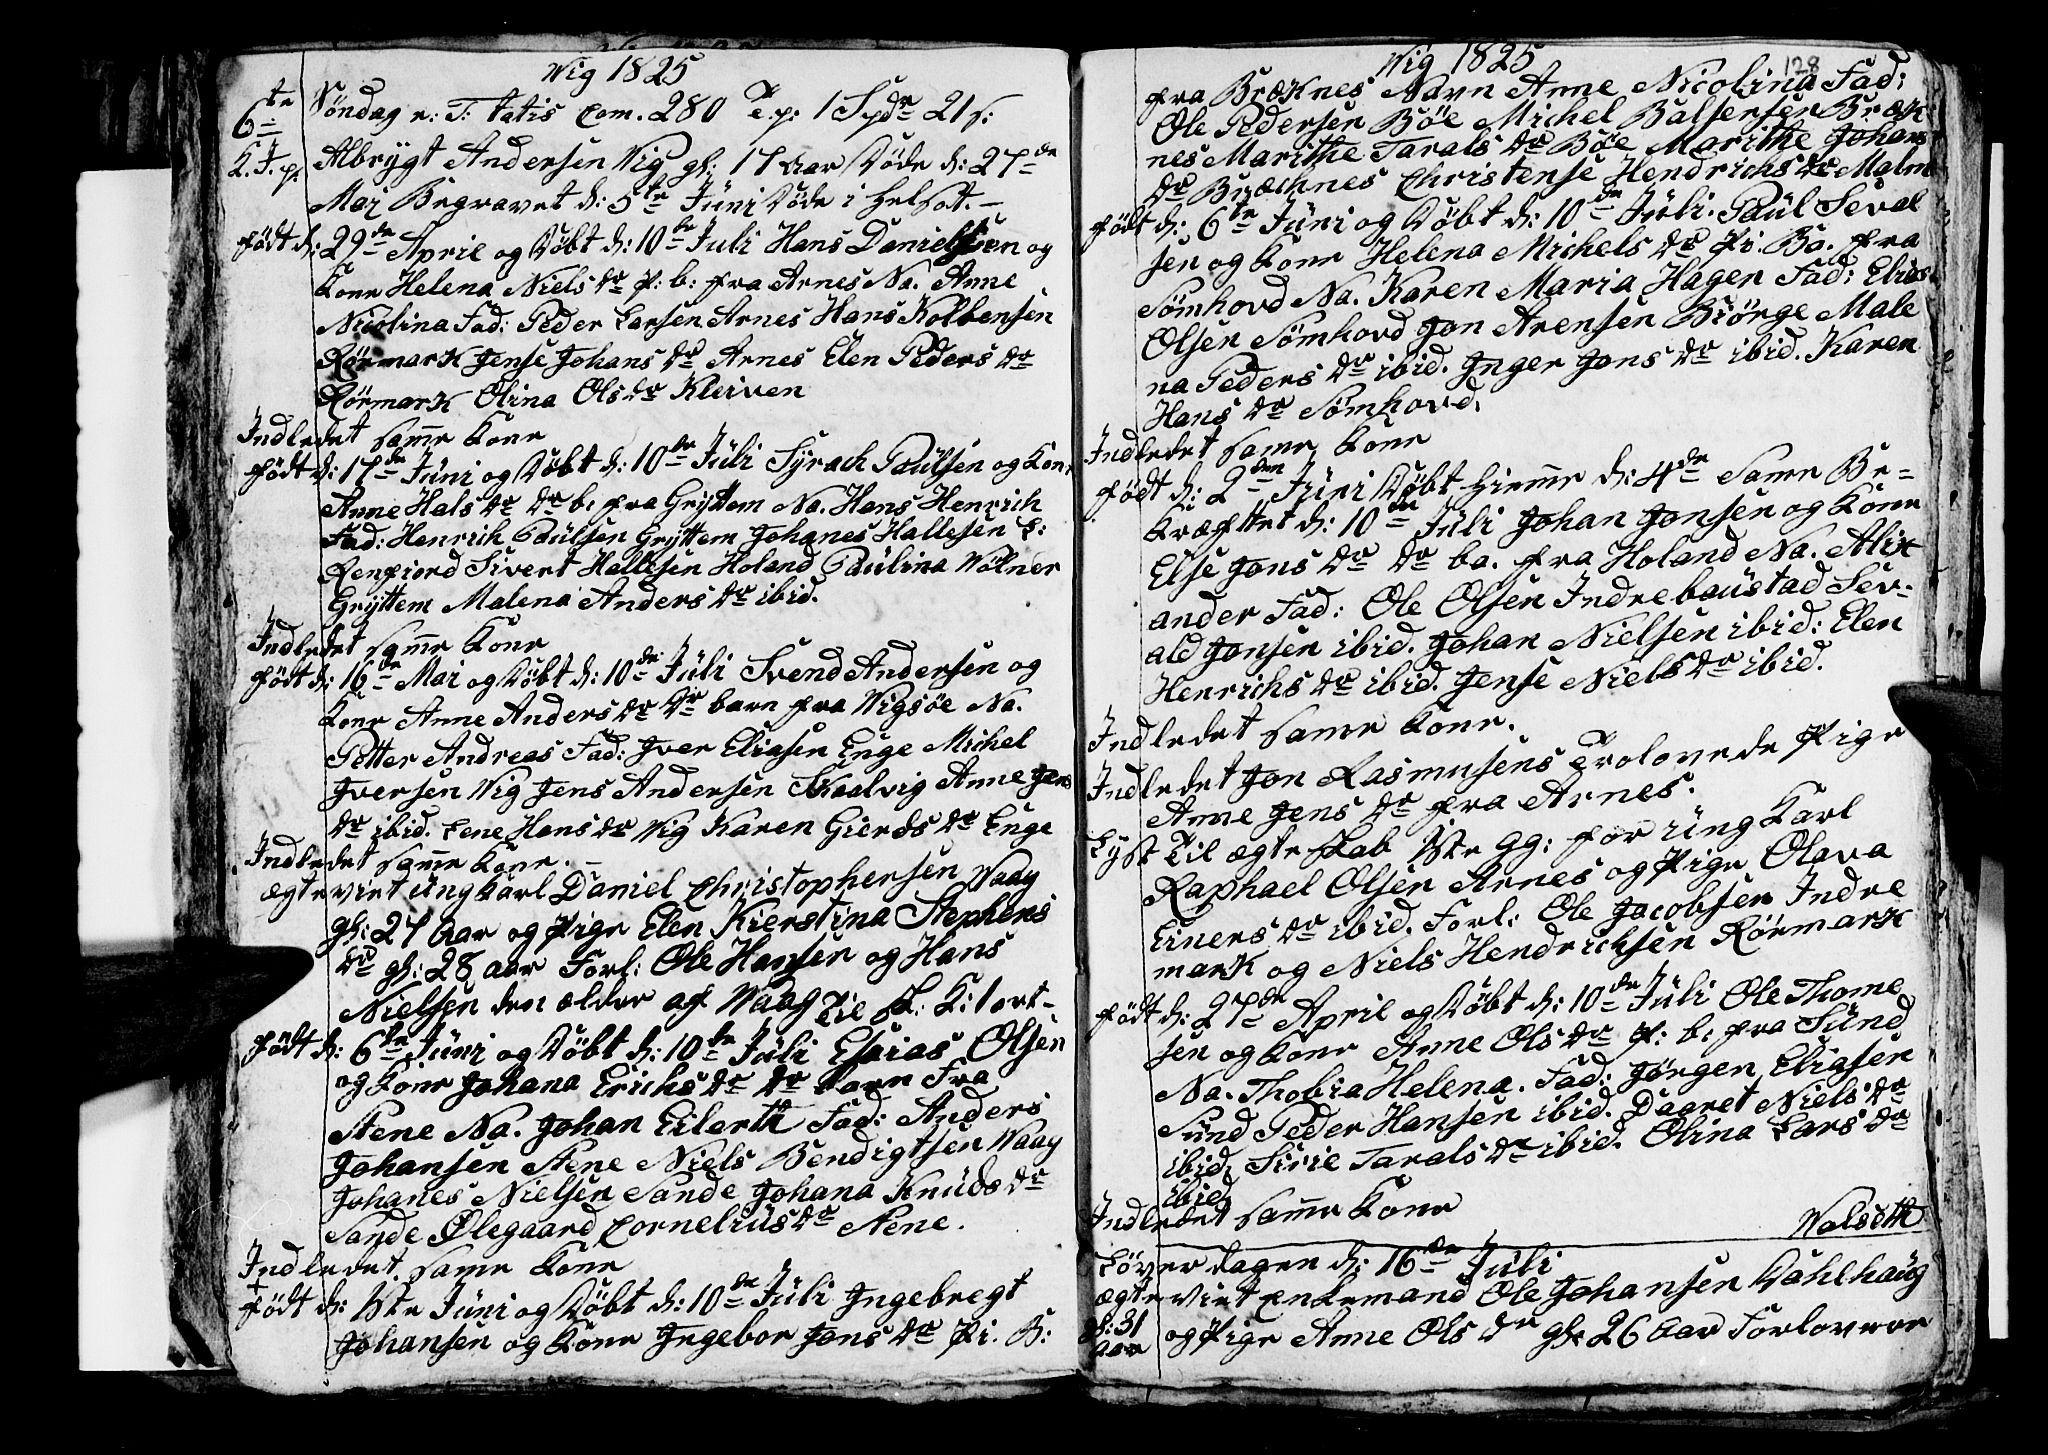 Wig 1825
6te Söndag e: T: tatis Com. 280 T. p: 1 Spdr 21 s:
K. I. p. Albrygt Andersen Wig gl: 17 Aar Döde d: 27de
Mai Begravet d: 5te Jüni Döde i Helsot. –
Födt d: 29de April og Döbt d: 10de Jüli Hans Danielsen og
Kone Helena Niels dr P: b: fra Arnes Na. Anne
Nicolina Fad: Peder Larsen Arnes Hans Kolbensen
Rörmark Jense Johans dr Arnes Elen Peders dr
Rörmark Olina Ols dr Kleiven
Indledet samme Kone
Födt d: 17de Jüni og Döbt d: 10de Jüli Syrach Paülsen og Kone
Anne Hals dr Dr b: fra Gryttem Na. Hans Henrich
Fad: Henrich Paülsen Gryttem Johanes Hallesen L:
Renfiord Sivert Hallesen Holand Paülina Wölner
Gryttem Malena Anders dr ibid.
Indledet samme Kone
Födt d: 16de Mai og Döbt d: 10de Jüli Svend Andersen og
Kone Anne Anders dr Dr barn fra Wigsöe Na.
Petter Andreas Fad: Iver Eliasen Enge Michel
Iversen Wig Jens Andersen Skaalvig Anne Jens
dr ibid. Lene Hans dr Wig Karen Gierds dr Enge
Indledet samme Kone. –
ægteviet üng Karl Daniel Christophersen Waag
gl: 27 Aar og Pige Elen Kierstina Stephens
dr gl: 28 aar Forl: Ole Hansen og Hans
Nielsen den ælder af Waag til sk. K: 1 ort –
Födt d: 6te Jüni og Döbt d: 10de Jüli Esaias Olsen
og Kone Johana Erichs dr Dr Barn Fra
Stene Na. Johan Eilerth Fad: Anders
Johansen Stene Niels Bendigtsen Waag
Johanes Nielsen Sande Johana Knüds dr
Sande Olegaard Cornelius dr Stene.
Indledet. same Kone
Födt d: 1ste Jüni og Döbt d: 10de Jüli Ingebregt
Johansen og Kone Ingebor Jons dr Pi. B:
Wig 1825
128
fra Bræknes Navn Anne Nicolina Fad:
Ole Pedersen Böe Michel Balsersen Bræk
nes Marithe Tarals dr Böe Marithe Johans
dr Bræchnes Christense Hendrichs dr Malm
Födt d: 6te Jüni og Döbt d: 10de Jüli. Paül Seval
sen og Kone Helena Michels dr Pi. Ba. fra
Sömhovd Na. Karen Maria Hagen Fad: Elias
Olsen Sömhovd Jon Arensen Biörge Male
na Peders dr ibid. Inger Jons dr ibid. Karen
Hans dr Sömhovd.
Indledet same Kone
Födt d: 2den Jüni Döbt hiemme d: 4de Same Be-
kræfttet d: 10de Jüli Johan Jonsen og Kone
Else Jons dr Dr ba. fra Holand Na. Alix
ander Fad: Ole Olsen Indrebaustad Sev-
ald Jonsen ibid. Johan Nielsen ibid: Elen
Henrichs dr ibid. Jense Niels dr ibid.
Indledet same Kone.
Indledet Jon Rasmusens Trolovede Pige
Anne Jens dr fra Arnes.
Lyst til ægteskab 1ste gg: for üng Karl
Raphael Olsen Arnes og Pige Olava
Einers dr ibid. Forl: Ole Jacobsen Indre
mark og Niels Hendrichsen Rörmark
Födt d: 27de April og Döbt d: 10de Jüli Ole Thome
sen og Kone Anne Ols dr P: b: fra Sünd
Na. Thobia Helena. Fad: Jörgen Eliasen
Sünd Peder Hansen ibid. Daaret Niels dr
ibid. Sirie Tarals dr ibid. Olina Lars dr
ibid
Indledet samme Kone
Walseth
Löverdagen d: 16de Jüli
ægteviet Enkemand Ole Johansen Dahlhaüg
gl: 31 aar og Pige Anne Ols dr gl: 26 Aar Forlovere